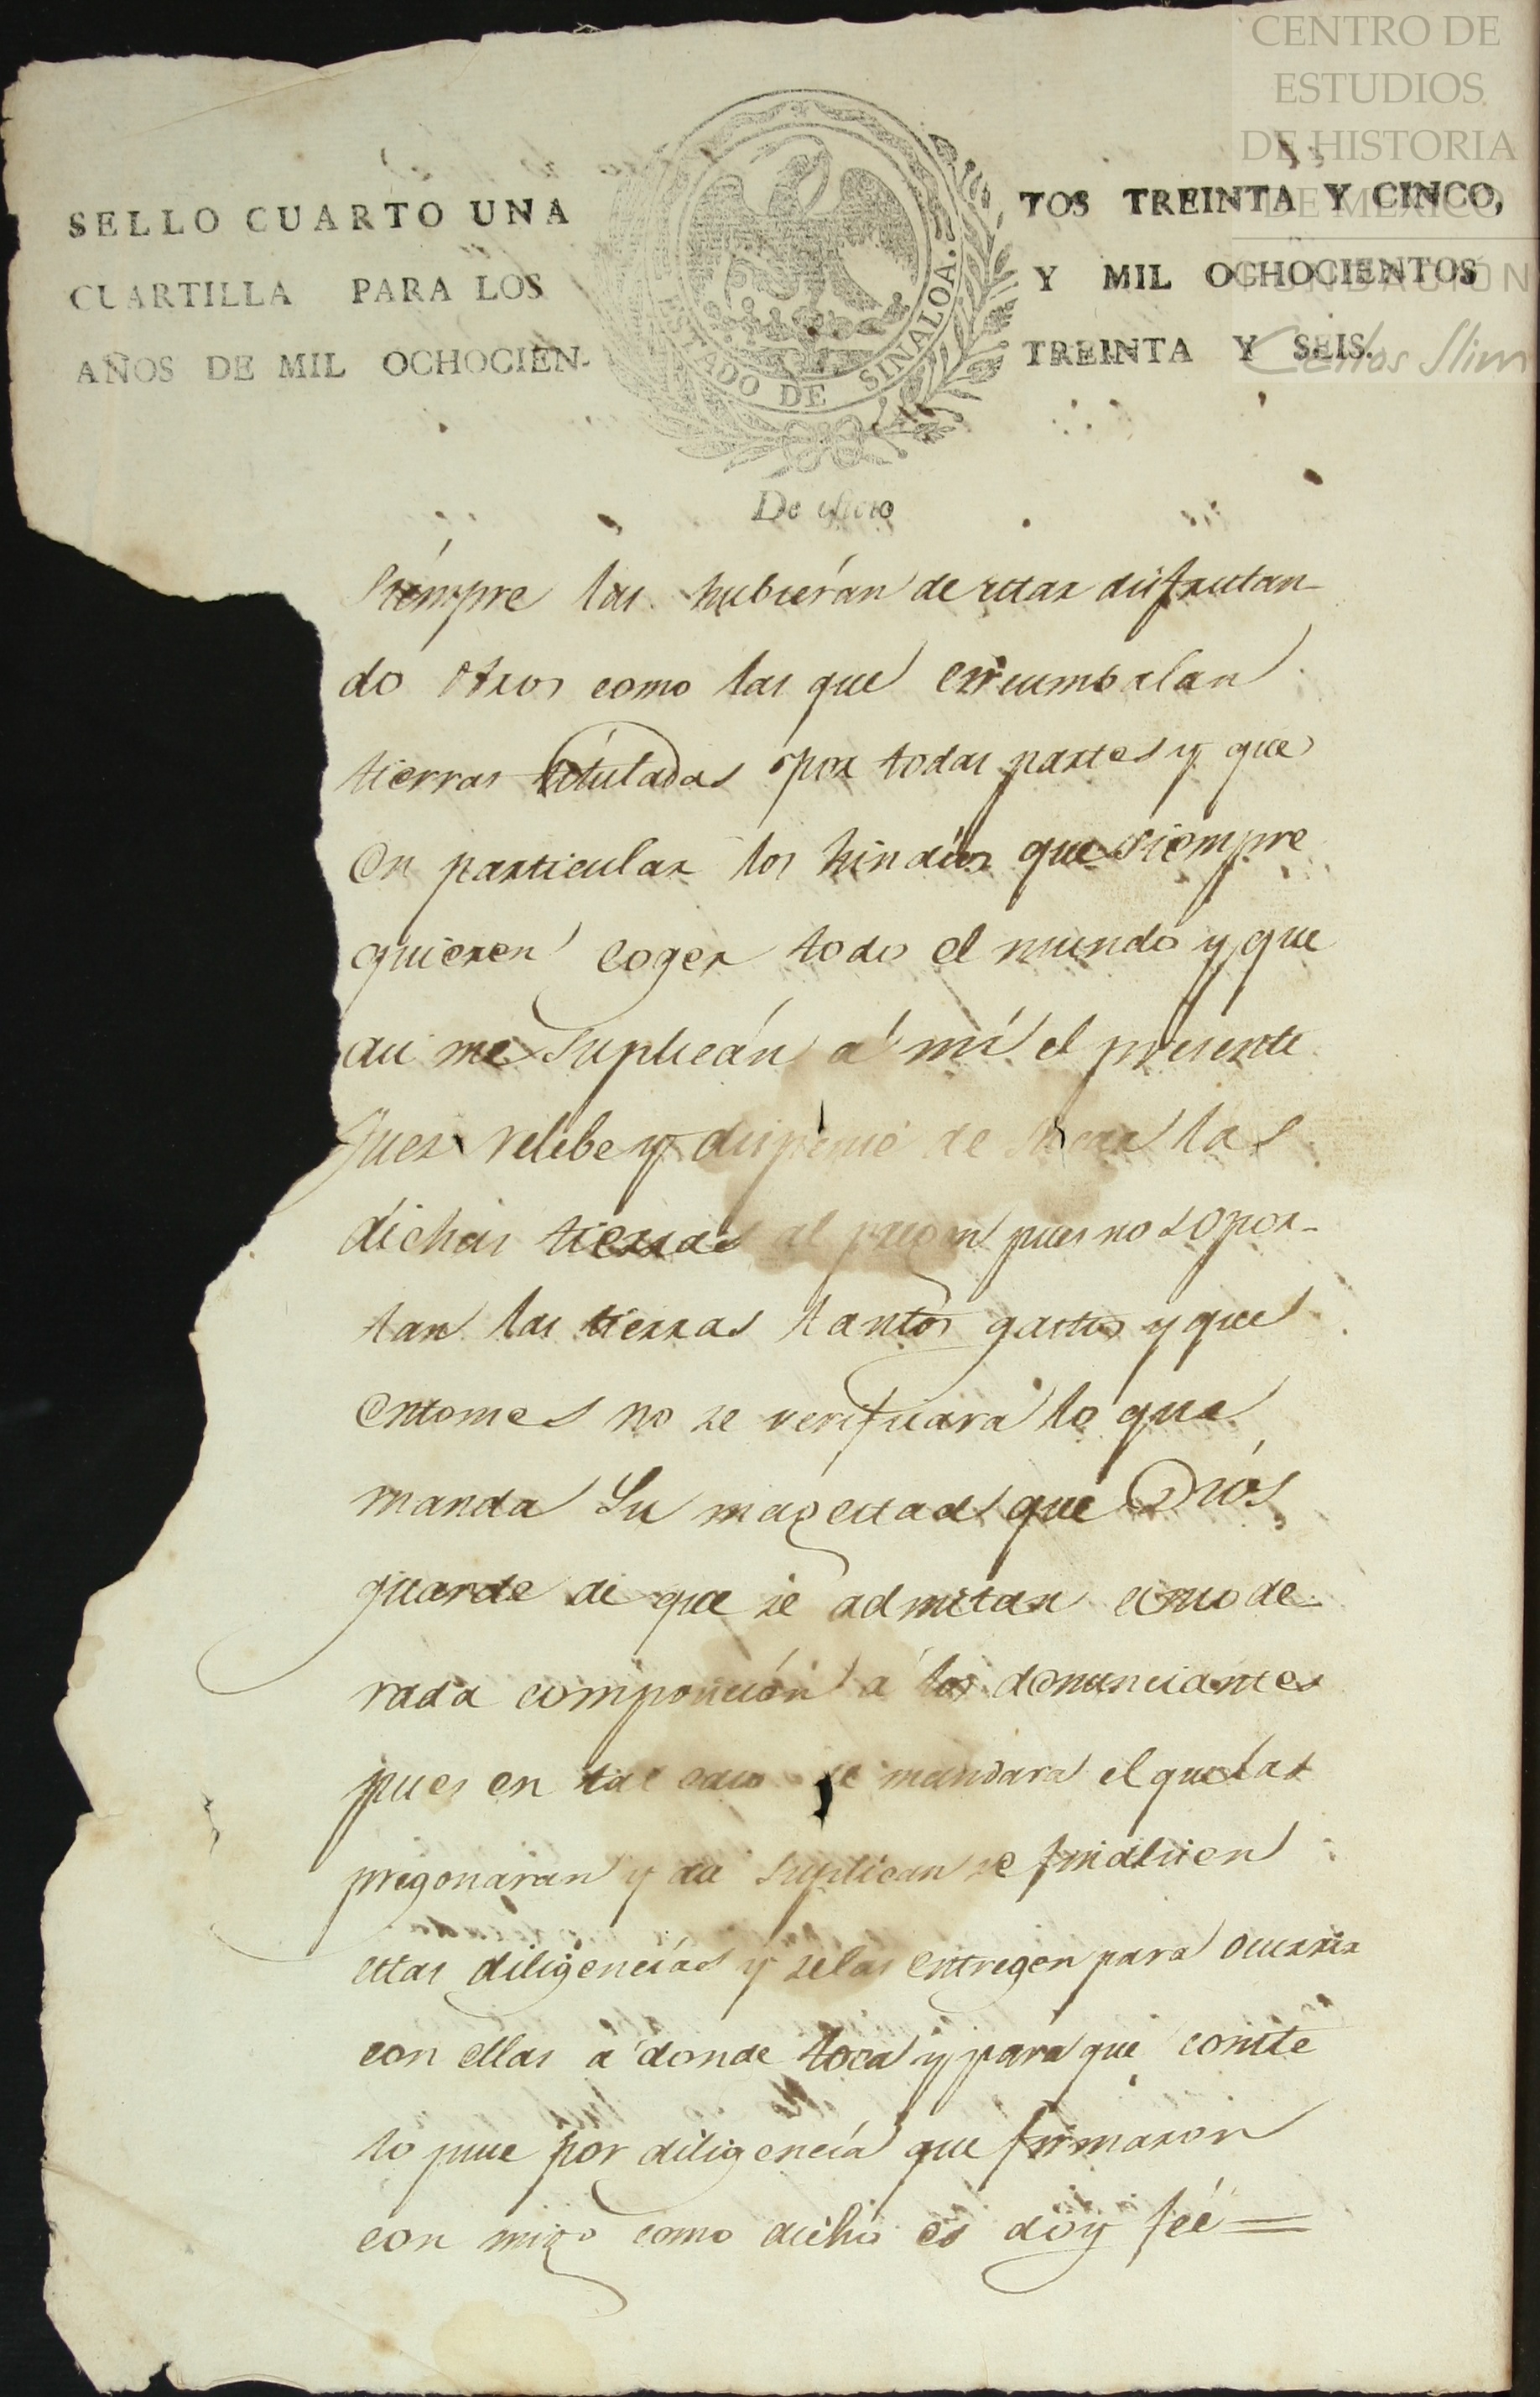 CENTRO DE
ESTUDIOS
DE HISTORIA
DE MÉXICO
FUNDACIÓN
Carlos Slim
SELLO CUARTO UNA
CUARTILLA PARA LOS
AÑOS DE MIL OCHOCIEN-
ESTADO DE SINALOA.
TOS TREINTA Y CINCO,
Y MIL OCHOCIENTOS
TREINTA Y SEIS.
De oficio
Siempre las hubierán de estar disfrutan-
do otros como las que circumbalan
tierras tituladas por todas partes y que
en particular los hindios que siempre
quieren coger todo el mundo y que
asi me suplicán á mí el presente
Juez relebe y dispense de sacar las
dichas tierras al pregon pues no sopor-
tan las tierras tantos gastos y que
entonces no se verificara lo que
manda Su magestad que Dios
guarde de que se admitan a mode-
rada composición á los denunciantes
pues en tal caso se mandara el que las
pregonaran y asi suplican se finalisen
estas diligencias y se las entregen para ocurrir
con ellas a donde toca y para que conste
lo puse por diligencía que firmaron
con migo como dicho es doy feé =